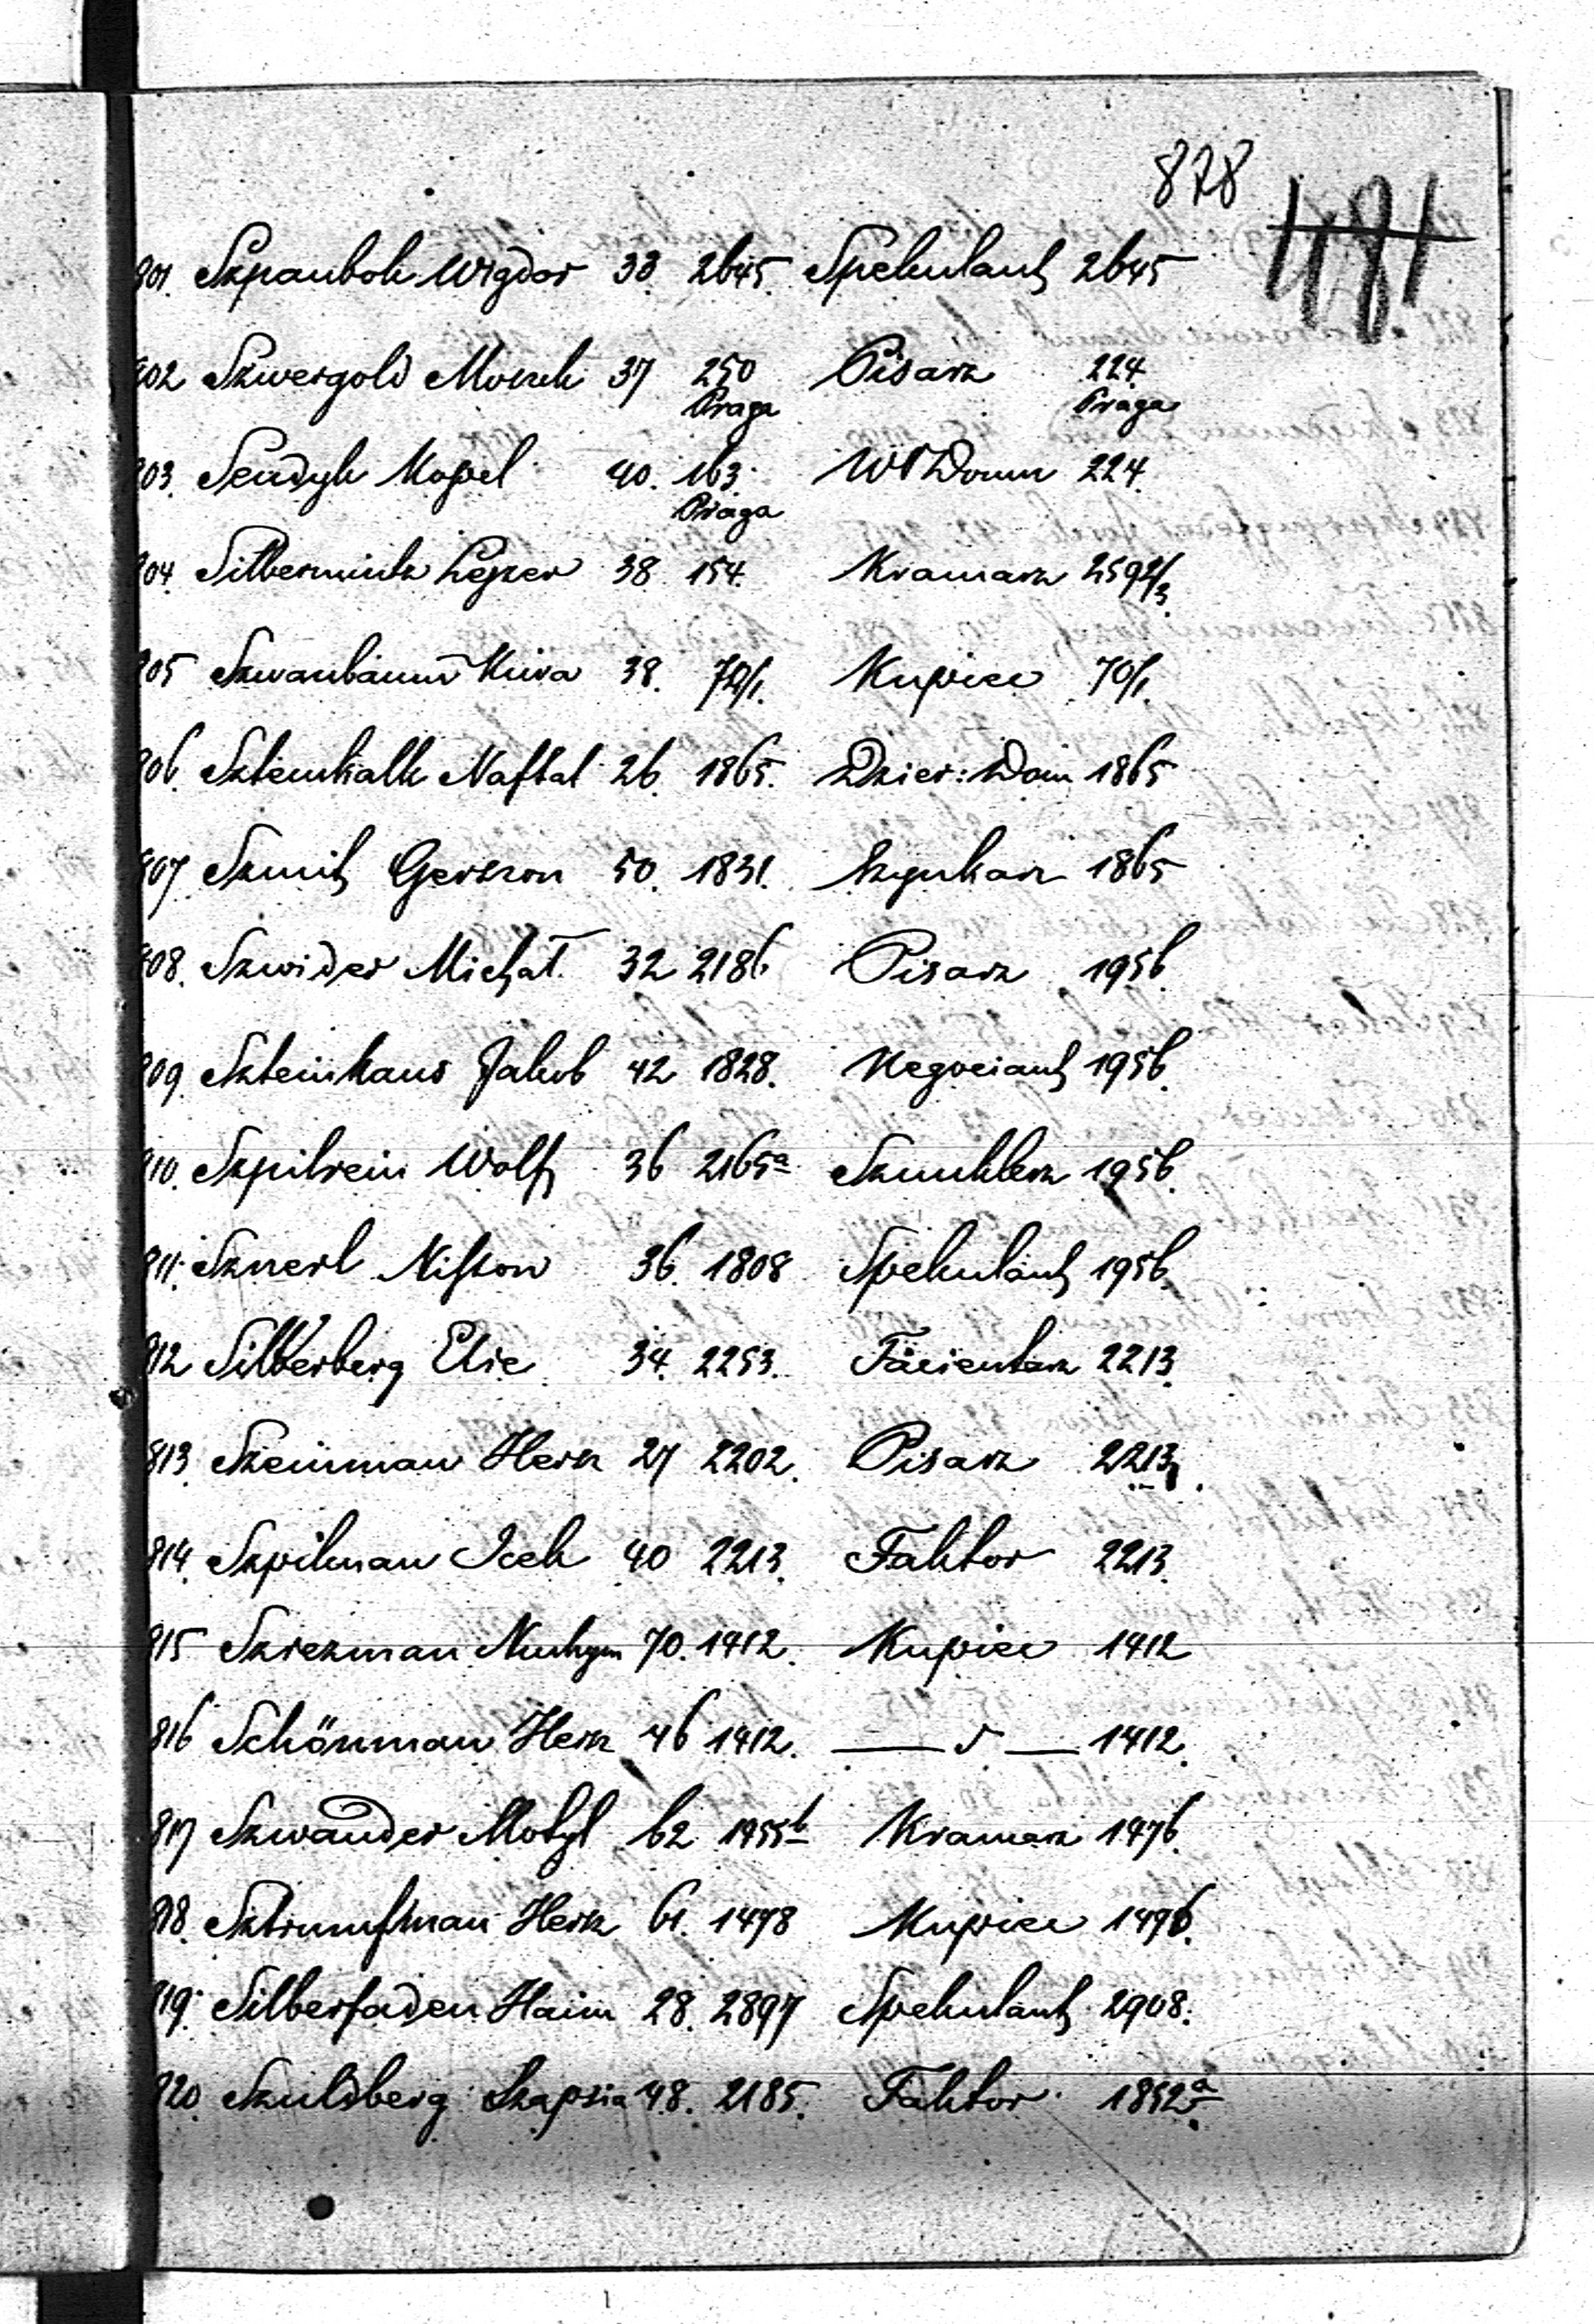 878
481
801. Szpanbok Wigdor 33. 2645. Spekulant 2645
802 Szwergold Moszek 37 250 Pisarz 224.
Praga Praga
803. Sendyk Kopel 40. 163. WŁ Domu 224.
Praga
804. Silbermintz Lejzer 38. 154. Kramarz 2592/3.
805 Szwanbaum Kiwa 38. 70/1. Kupiec 70/1.
806. Szteinkalk Naftal 26. 1865. Dzier: Dom 1865
807 Szmit Gerszon 50. 1831. Szynkarz 1865
808. Szwider Michał 32 2186 Pisarz 1956.
809. Szteinhaus Jakub 42 1828. Negociant 1956.
810. Szpilrein Wolf 36 2165a Szmuklerz 1956.
811. Sznerl Nisson 36. 1808 Spekulant 1956.
812 Silberberg Elie 34. 2253. Faciendarz 2213.
813. Szeinman Herz 27 2202. Pisarz 2213.
814. Szpilman Icek 40 2213. Faktor 2213.
815 Szrezman Nuchym 70. 1412. Kupiec 1412
816 Schönman Herz 46 1412. — " — 1412.
817 Szwander Motyl 62 1455b Kramarz 1476.
818. Sztrumfman Herz 61. 1478 Kupiec 1496.
819. Silberfaden Haim 28. 2897 Spekulant 2908.
820. Szuldberg Szapsia 48. 2185. Faktor 1852a